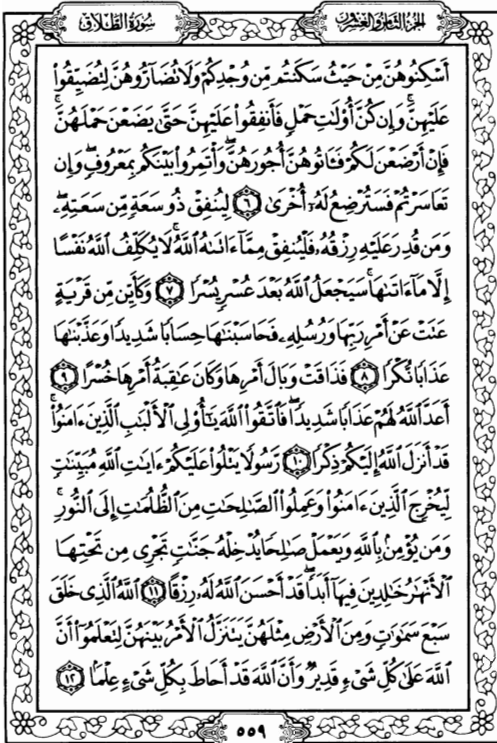 الجزء الثامن والعشرون
سورة الطلاق
أَسْكِنُوهُنَّ مِنْ حَيْثُ سَكَنتُم مِّن وُجْدِكُمْ وَلَا تُضَارُّوهُنَّ لِتُضَيِّقُوا۟
عَلَيْهِنَّ ۚ وَإِن كُنَّ أُو۟لَـٰتِ حَمْلٍ فَأَنفِقُوا۟ عَلَيْهِنَّ حَتَّىٰ يَضَعْنَ حَمْلَهُنَّ ۚ
فَإِنْ أَرْضَعْنَ لَكُمْ فَـَٔاتُوهُنَّ أُجُورَهُنَّ ۖ وَأْتَمِرُوا۟ بَيْنَكُم بِمَعْرُوفٍ ۖ وَإِن
تَعَاسَرْتُمْ فَسَتُرْضِعُ لَهُۥٓ أُخْرَىٰ ٦ لِيُنفِقْ ذُو سَعَةٍ مِّن سَعَتِهِۦ ۖ
وَمَن قُدِرَ عَلَيْهِ رِزْقُهُۥ فَلْيُنفِقْ مِمَّآ ءَاتَىٰهُ ٱللَّهُ ۚ لَا يُكَلِّفُ ٱللَّهُ نَفْسًا
إِلَّا مَآ ءَاتَىٰهَا ۚ سَيَجْعَلُ ٱللَّهُ بَعْدَ عُسْرٍ يُسْرًا ٧ وَكَأَيِّن مِّن قَرْيَةٍ
عَتَتْ عَنْ أَمْرِ رَبِّهَا وَرُسُلِهِۦ فَحَاسَبْنَـٰهَا حِسَابًا شَدِيدًا وَعَذَّبْنَـٰهَا
عَذَابًا نُّكْرًا ٨ فَذَاقَتْ وَبَالَ أَمْرِهَا وَكَانَ عَـٰقِبَةُ أَمْرِهَا خُسْرًا ٩
أَعَدَّ ٱللَّهُ لَهُمْ عَذَابًا شَدِيدًا ۖ فَٱتَّقُوا۟ ٱللَّهَ يَـٰٓأُو۟لِى ٱلْأَلْبَـٰبِ ٱلَّذِينَ ءَامَنُوا۟ ۚ
قَدْ أَنزَلَ ٱللَّهُ إِلَيْكُمْ ذِكْرًا ١٠ رَّسُولًا يَتْلُوا۟ عَلَيْكُمْ ءَايَـٰتِ ٱللَّهِ مُبَيِّنَـٰتٍ
لِّيُخْرِجَ ٱلَّذِينَ ءَامَنُوا۟ وَعَمِلُوا۟ ٱلصَّـٰلِحَـٰتِ مِنَ ٱلظُّلُمَـٰتِ إِلَى ٱلنُّورِ ۚ
وَمَن يُؤْمِنۢ بِٱللَّهِ وَيَعْمَلْ صَـٰلِحًا يُدْخِلْهُ جَنَّـٰتٍ تَجْرِى مِن تَحْتِهَا
ٱلْأَنْهَـٰرُ خَـٰلِدِينَ فِيهَآ أَبَدًا ۖ قَدْ أَحْسَنَ ٱللَّهُ لَهُۥ رِزْقًا ١١ ٱللَّهُ ٱلَّذِى خَلَقَ
سَبْعَ سَمَـٰوَٰتٍ وَمِنَ ٱلْأَرْضِ مِثْلَهُنَّ يَتَنَزَّلُ ٱلْأَمْرُ بَيْنَهُنَّ لِتَعْلَمُوٓا۟ أَنَّ
ٱللَّهَ عَلَىٰ كُلِّ شَىْءٍ قَدِيرٌ وَأَنَّ ٱللَّهَ قَدْ أَحَاطَ بِكُلِّ شَىْءٍ عِلْمًۢا ١٢
٥٥٩